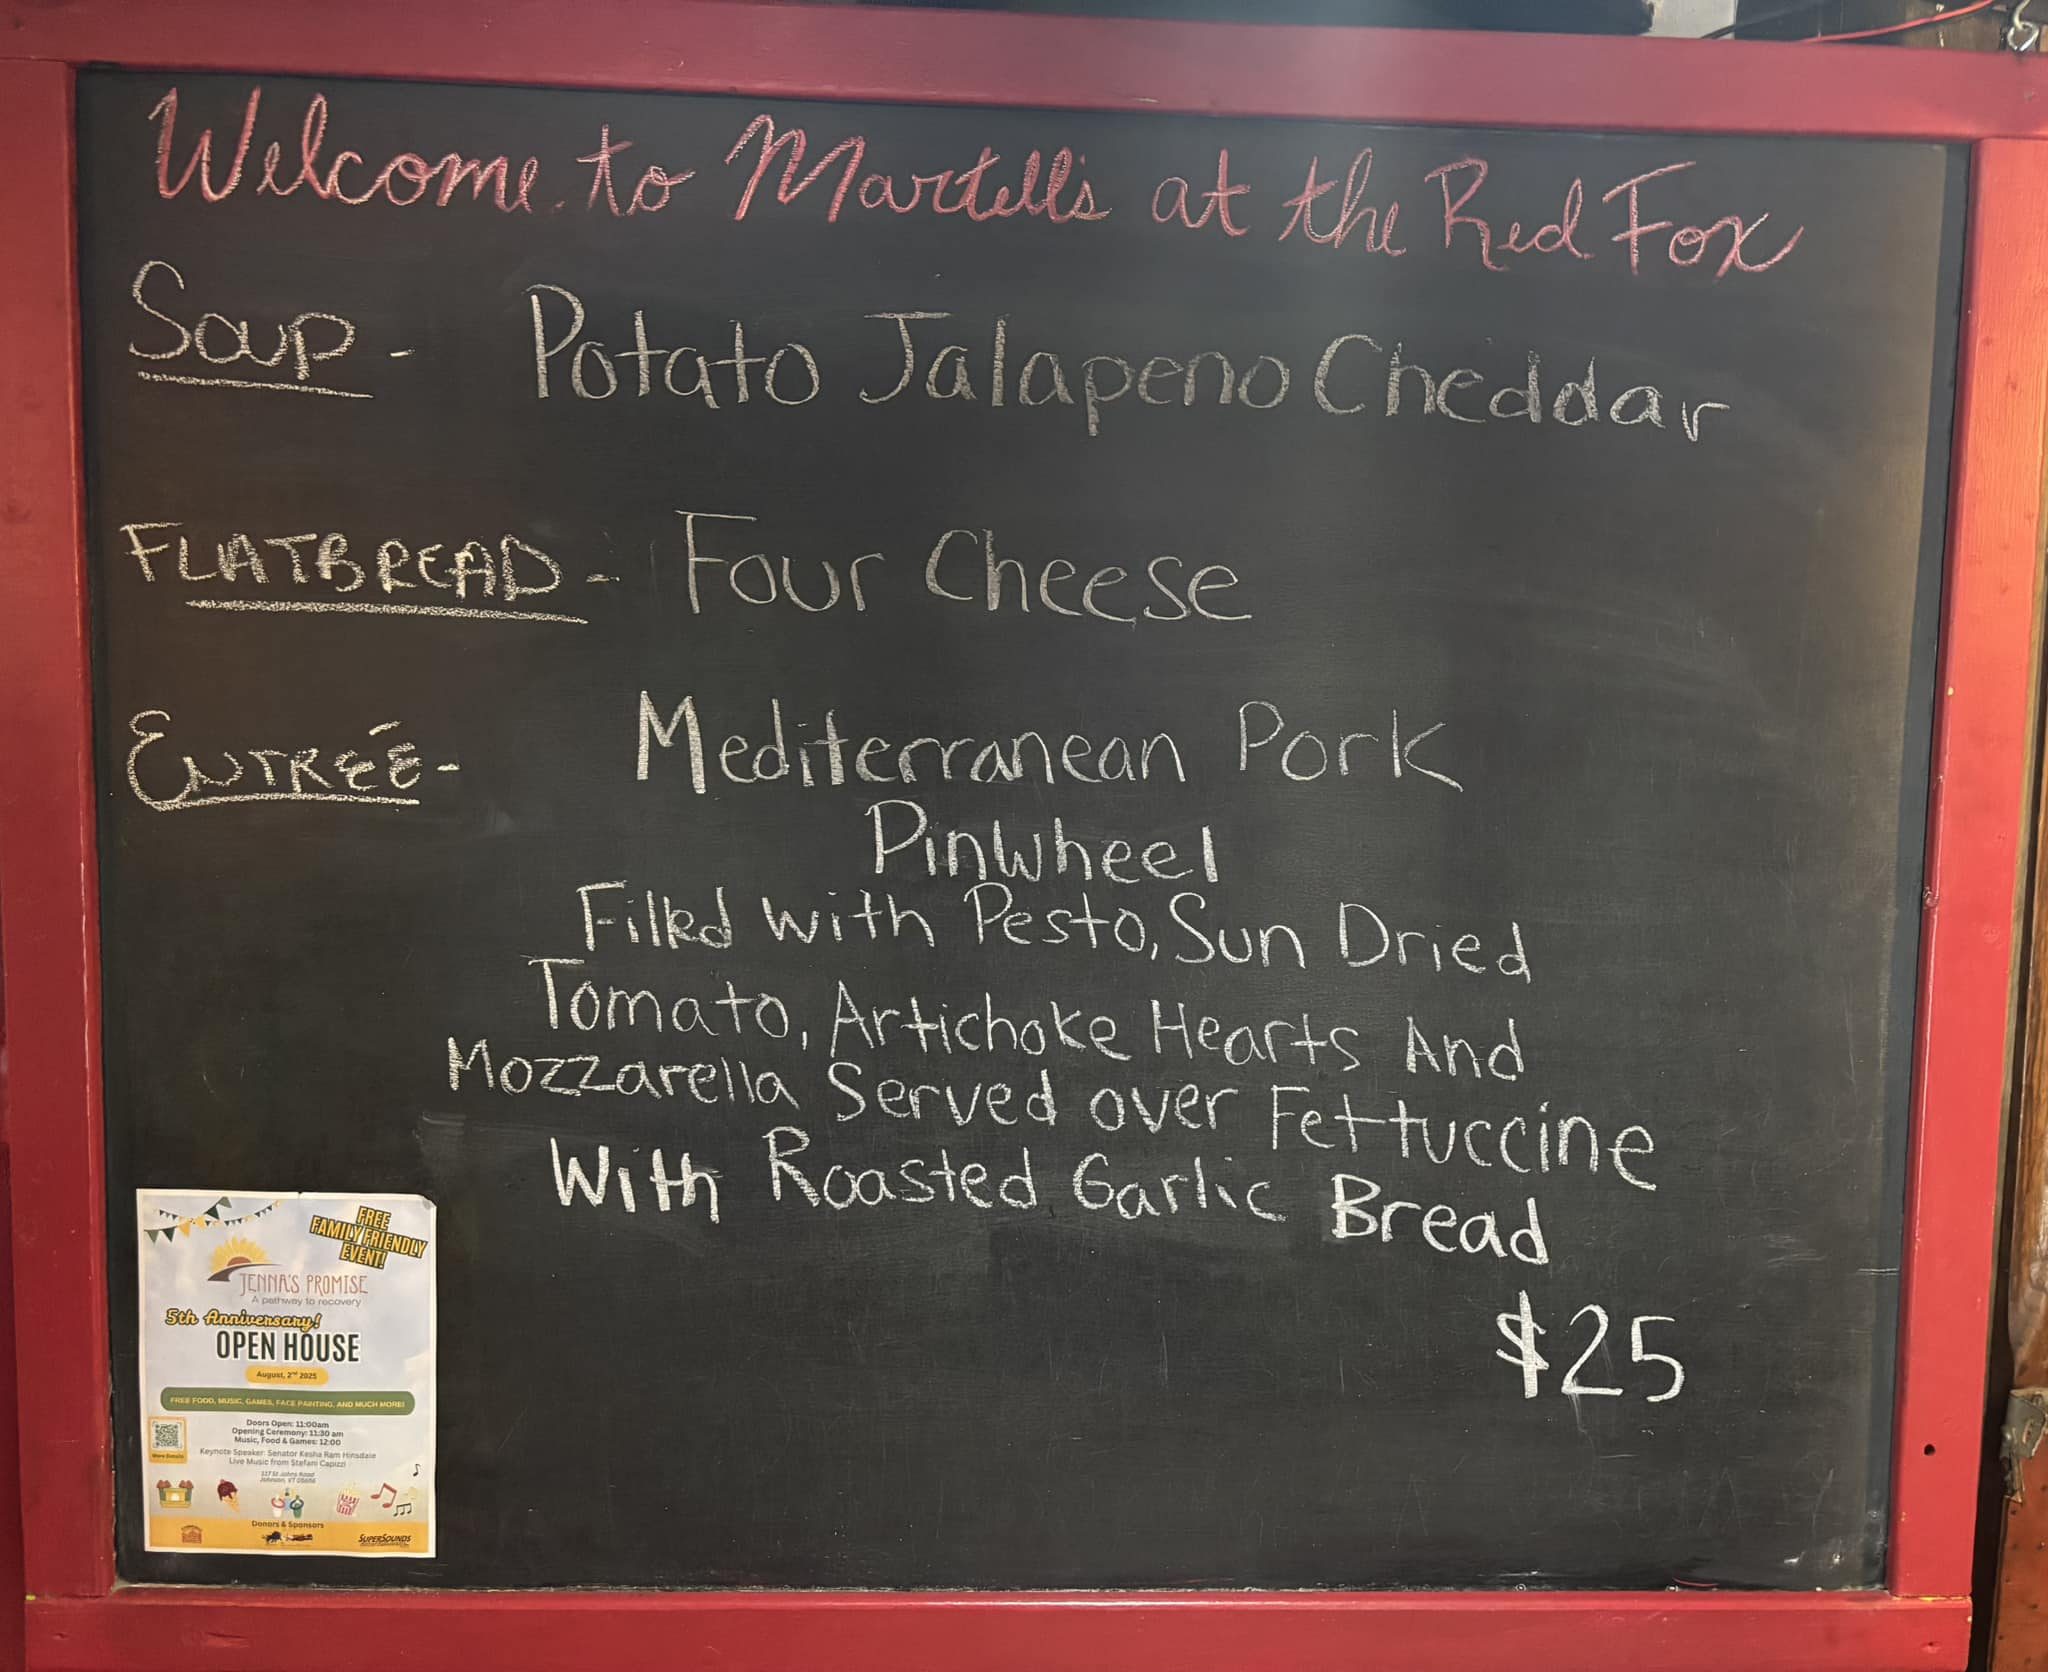 Welcome to Martell's at the Red Fox
Soup - Potato Jalapeno Cheddar
FLATBREAD - Four Cheese
ENTRÉE - Mediterranean Pork
Pinwheel
Filled with Pesto, Sun Dried
Tomato, Artichoke Hearts And
Mozzarella Served over Fettuccine
With Roasted Garlic Bread
$25
FREE
FAMILY FRIENDLY
EVENT!
JENNA'S PROMISE
A pathway to recovery
5th Anniversary!
OPEN HOUSE
August, 2nd 2025
FREE FOOD, MUSIC, GAMES, FACE PAINTING, AND MUCH MORE!
Doors Open: 11:00am
Opening Ceremony: 11:30 am
Music, Food & Games: 12:00
More Details
Keynote Speaker: Senator Kesha Ram Hinsdale
Live Music from Stefani Capizzi
117 St Johns Road
Johnson, VT 05656
Donors & Sponsors
SUPERSOUNDS